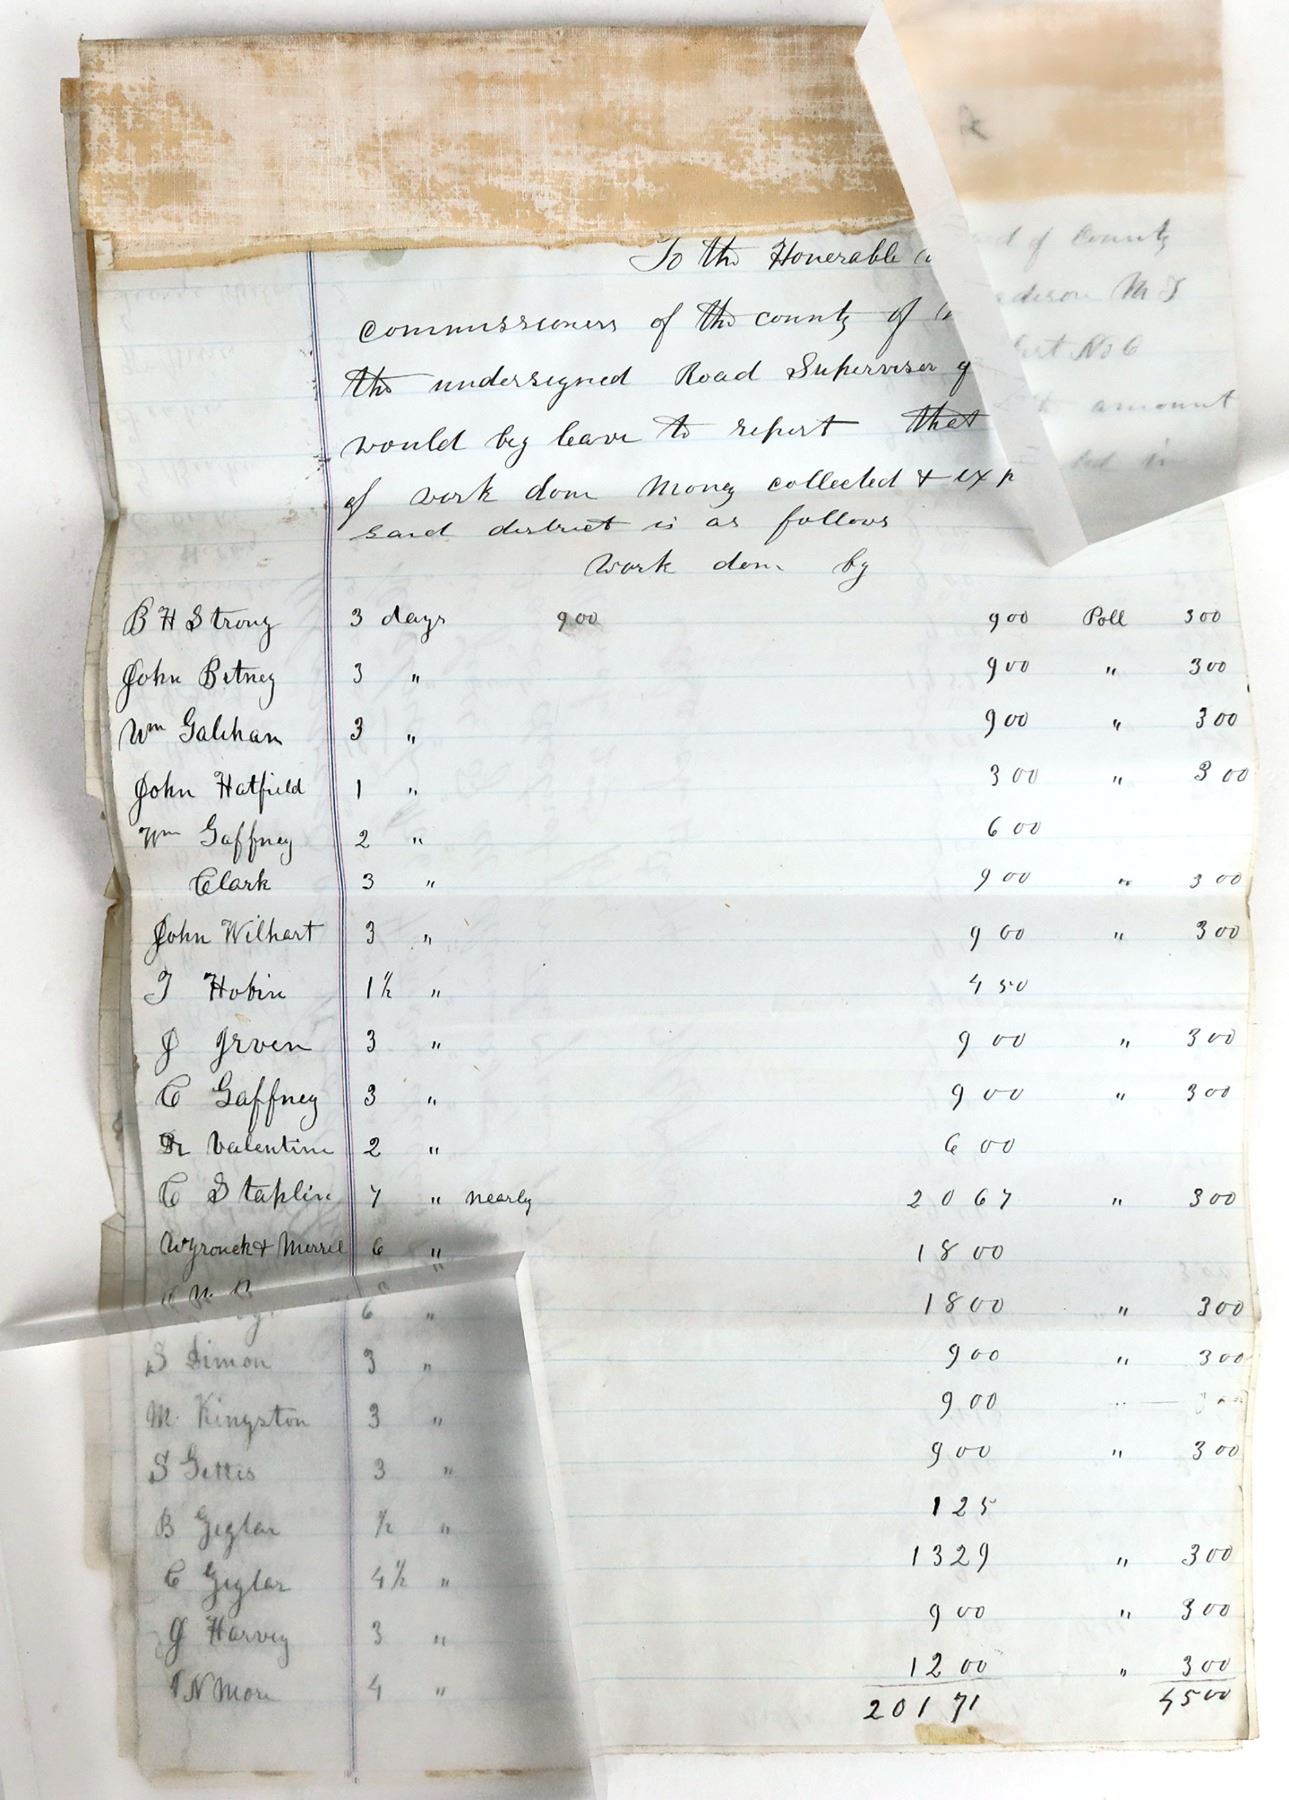 To the Honerable of County
commissioners of the county of M T
the undersigned Road Supervisor No 6
would beg leave to report that amount
of work done Money collected & in
said district is as follows
work done by
B H Strong 3 days 900 900 Poll 300
John Betney 3 " 900 " 300
Wm Galihan 3 " 900 " 300
John Hatfield 1 " 300 " 300
Wm Gaffney 2 " 600
Clark 3 " 900 " 300
John Wilhart 3 " 900 " 300
T Hobin 1½ " 450
J Irven 3 " 900 " 300
C Gaffney 3 " 900 " 300
Dr Valentine 2 " 600
C Staplin 7 " nearly 2067 " 300
& Merrel 6 " 1800
6 " 1800 " 300
S Simon 3 " 900 " 300
M Kingston 3 " 900
S Gettis 3 " 900 " 300
B Geglar ½ " 125
C Geglar 4½ " 1329 " 300
J Harvey 3 " 900 " 300
N More 4 " 1200 " 300
20171 4500